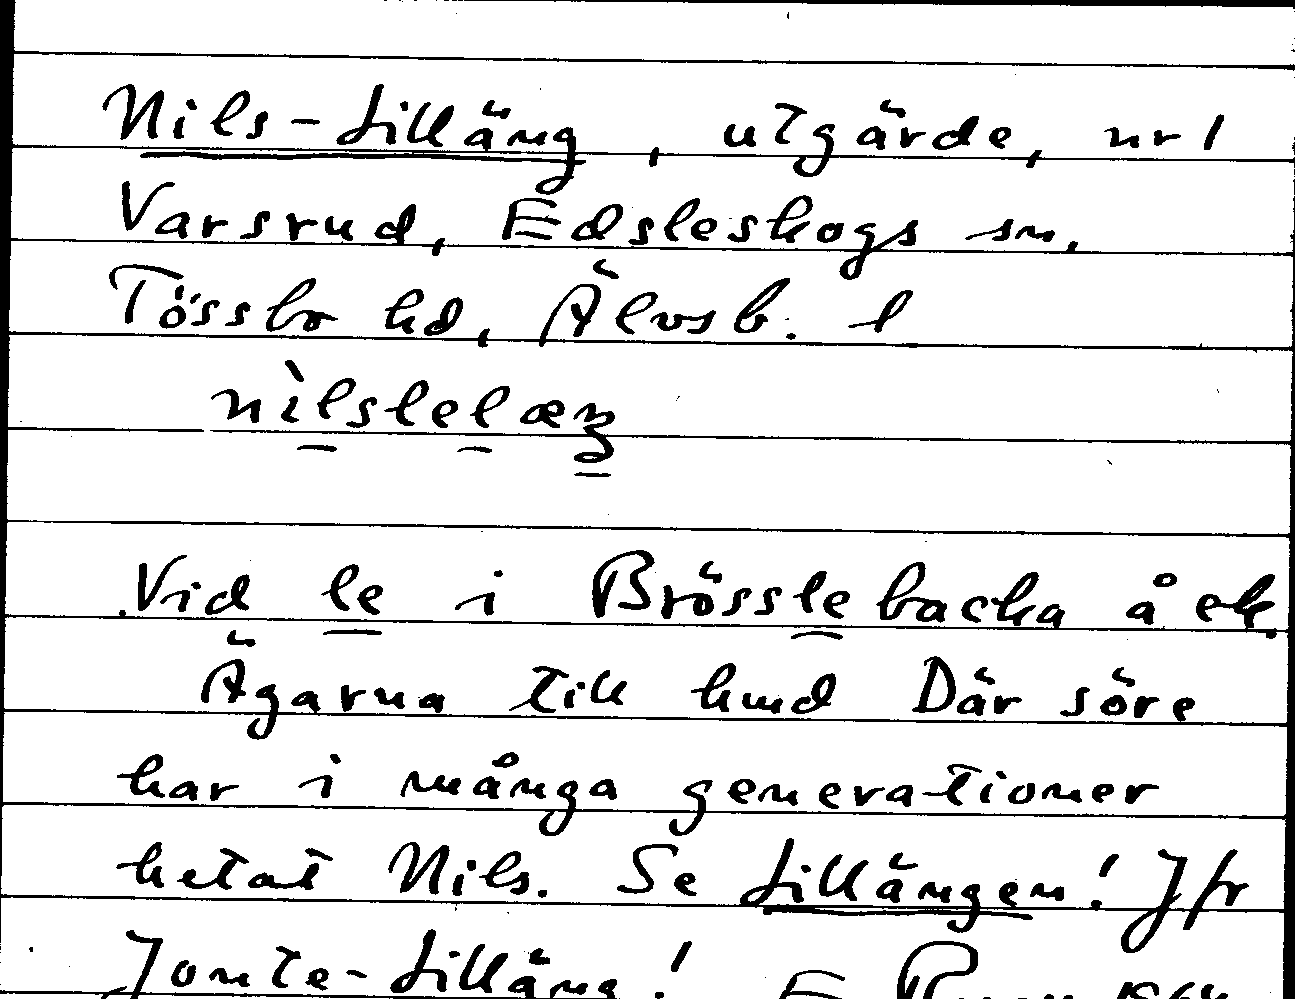 Nils-Lilläng, utgärde, nr 1
Varsrud, Edsleskogs sn,
Tössbo hd, Älvsb. l
nìlslelæŋ
Vid le i Brösslebacka å ek.
Ägarna till hmd Där söre
har i många generationer
hetat Nils. Se Lillängen! Jfr
Jonte-Lilläng! E